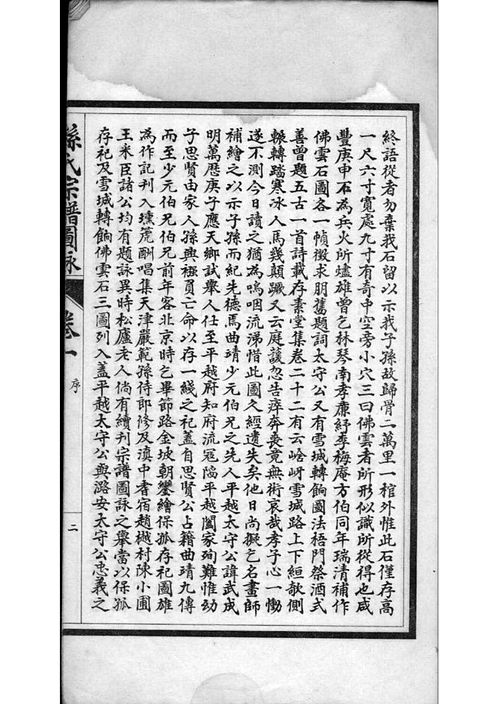 終語從者勿棄我石留以示我子孫故歸骨二萬里一棺外惟此石僅存高
一尺六寸寬處九寸有奇中空旁小穴三曰佛雲者所形似識所從得也咸
豐庚申石為兵火所壚雄曾乞林琴南孝廉紓李梅庵方伯同年瑞清補作
佛雲石圖各一幀徵求朋舊題詞太守公又有雪城轉餉圖法梧門祭酒式
善曾題五古一首詩載存素堂集卷二十二有云崎岈雪城路上下絙欹側
輾轉踏寒冰人馬幾顛蹶又云庭護忽告瘁奔喪竟無術哀哉孝子心一慟
遂不測今日讀之猶為嗚咽流涕惜此圖久經遺失矣他日尚擬乞名畫師
補繪之以示子孫而紀先德焉曲靖少元伯兄之先人平越太守公諱武成
明萬歷庚子應天鄉試舉人仕至平越府知府流寇陷平越闔家殉難惟幼
子思賢由家人孫興襁負亡命以存一綫之祀蓋自思賢公占籍曲靖九傳
而至少元伯兄伯兄前年客北京時乞畢節路金坡朝鑾繪保孤存祀圖雄
為作記刊入壎箎酬唱集天津嚴範孫侍郎修及滇中耆宿趙樾村陳小圃
王米臣諸公均有題詠異時松廬老人倘有續刊宗譜圖詠之舉當以保孤
存祀及雪城轉餉佛雲石三圖列入蓋平越太守公與潞安太守公忠義之
孫氏宗譜圖詠 卷一 序 二